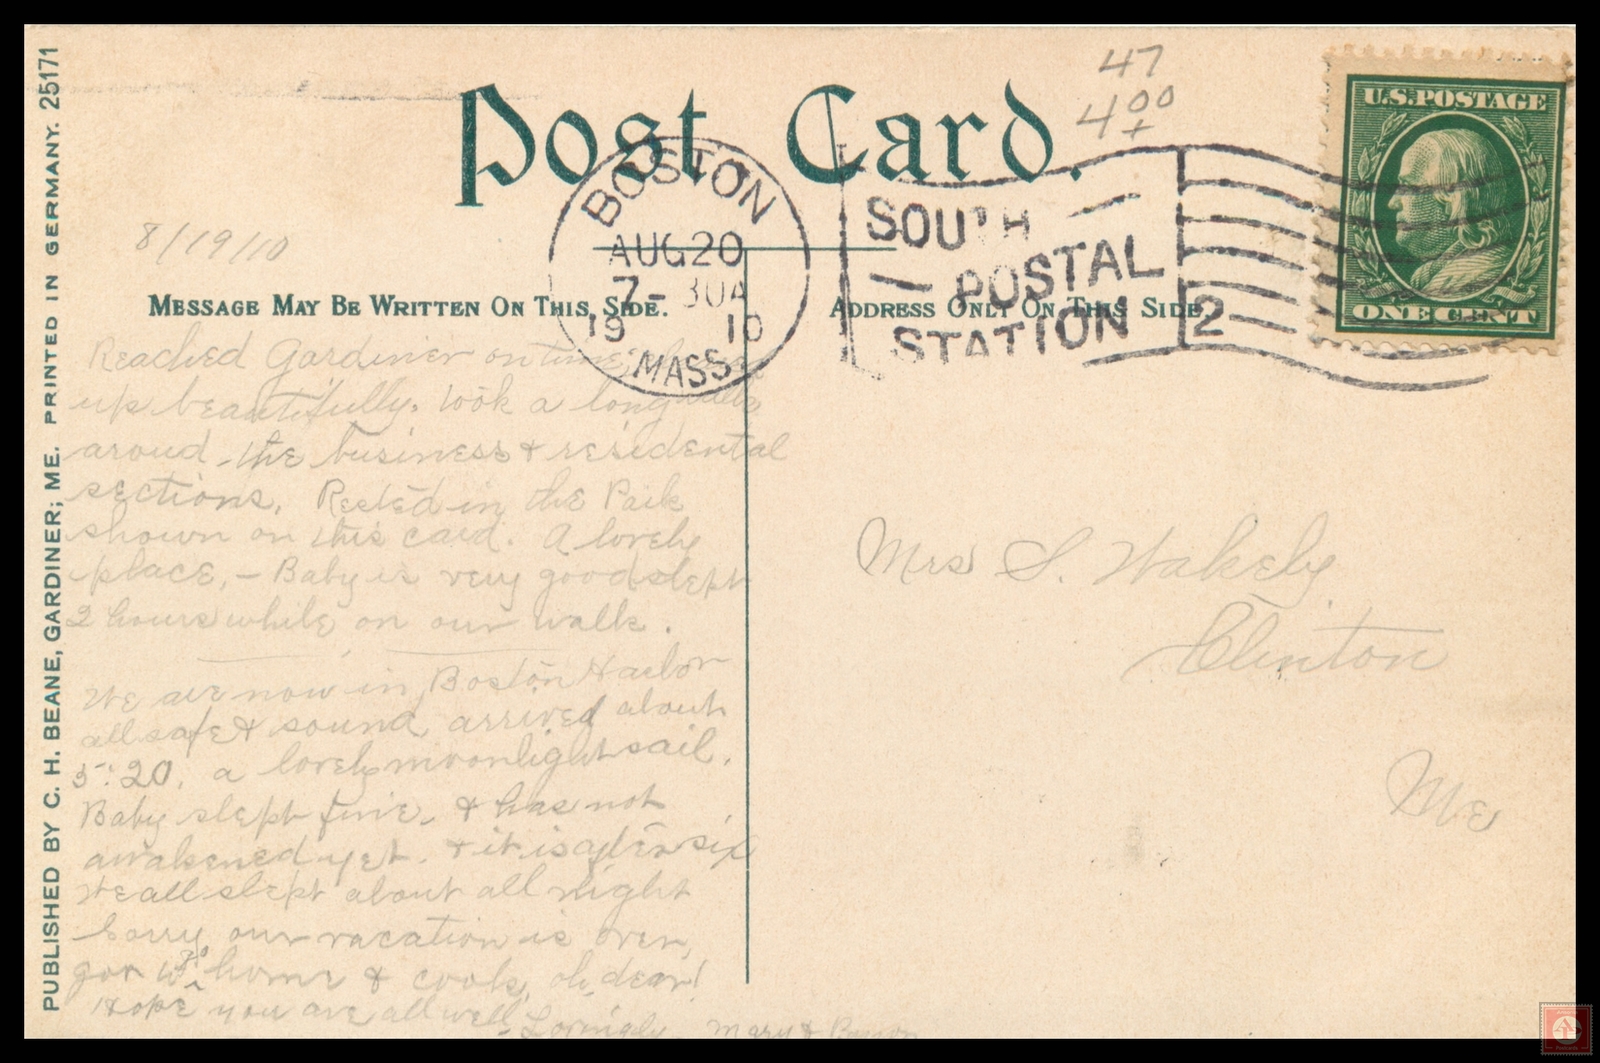 Post Card.
47
4 00
U.S. POSTAGE
ONE CENT
BOSTON
AUG 20
7-30A
19 10
MASS.
SOUTH
POSTAL
STATION
2
8/19/10
MESSAGE MAY BE WRITTEN ON THIS SIDE.
ADDRESS ONLY ON THIS SIDE
Reached Gardiner on time,
up beautifully. Took a long walk
aroud the business & residental
sections. Rested in the Park
shown on this card. A lovely
place, - Baby is very good slept
2 hours while on our walk.
We are now in Boston Harbor
all safe & sound, arrived about
5:20. a lovely moonlight sail.
Baby slept fine, & has not
awakened yet. & it is after six
We all slept about all night
Sorry our vacation is over,
home & cook, oh, dear!
Hope you are all well,
Lovingly Mary &
Mrs S. Wakely
Clinton
Me
PUBLISHED BY C. H. BEANE, GARDINER; ME. PRINTED IN GERMANY. 25171